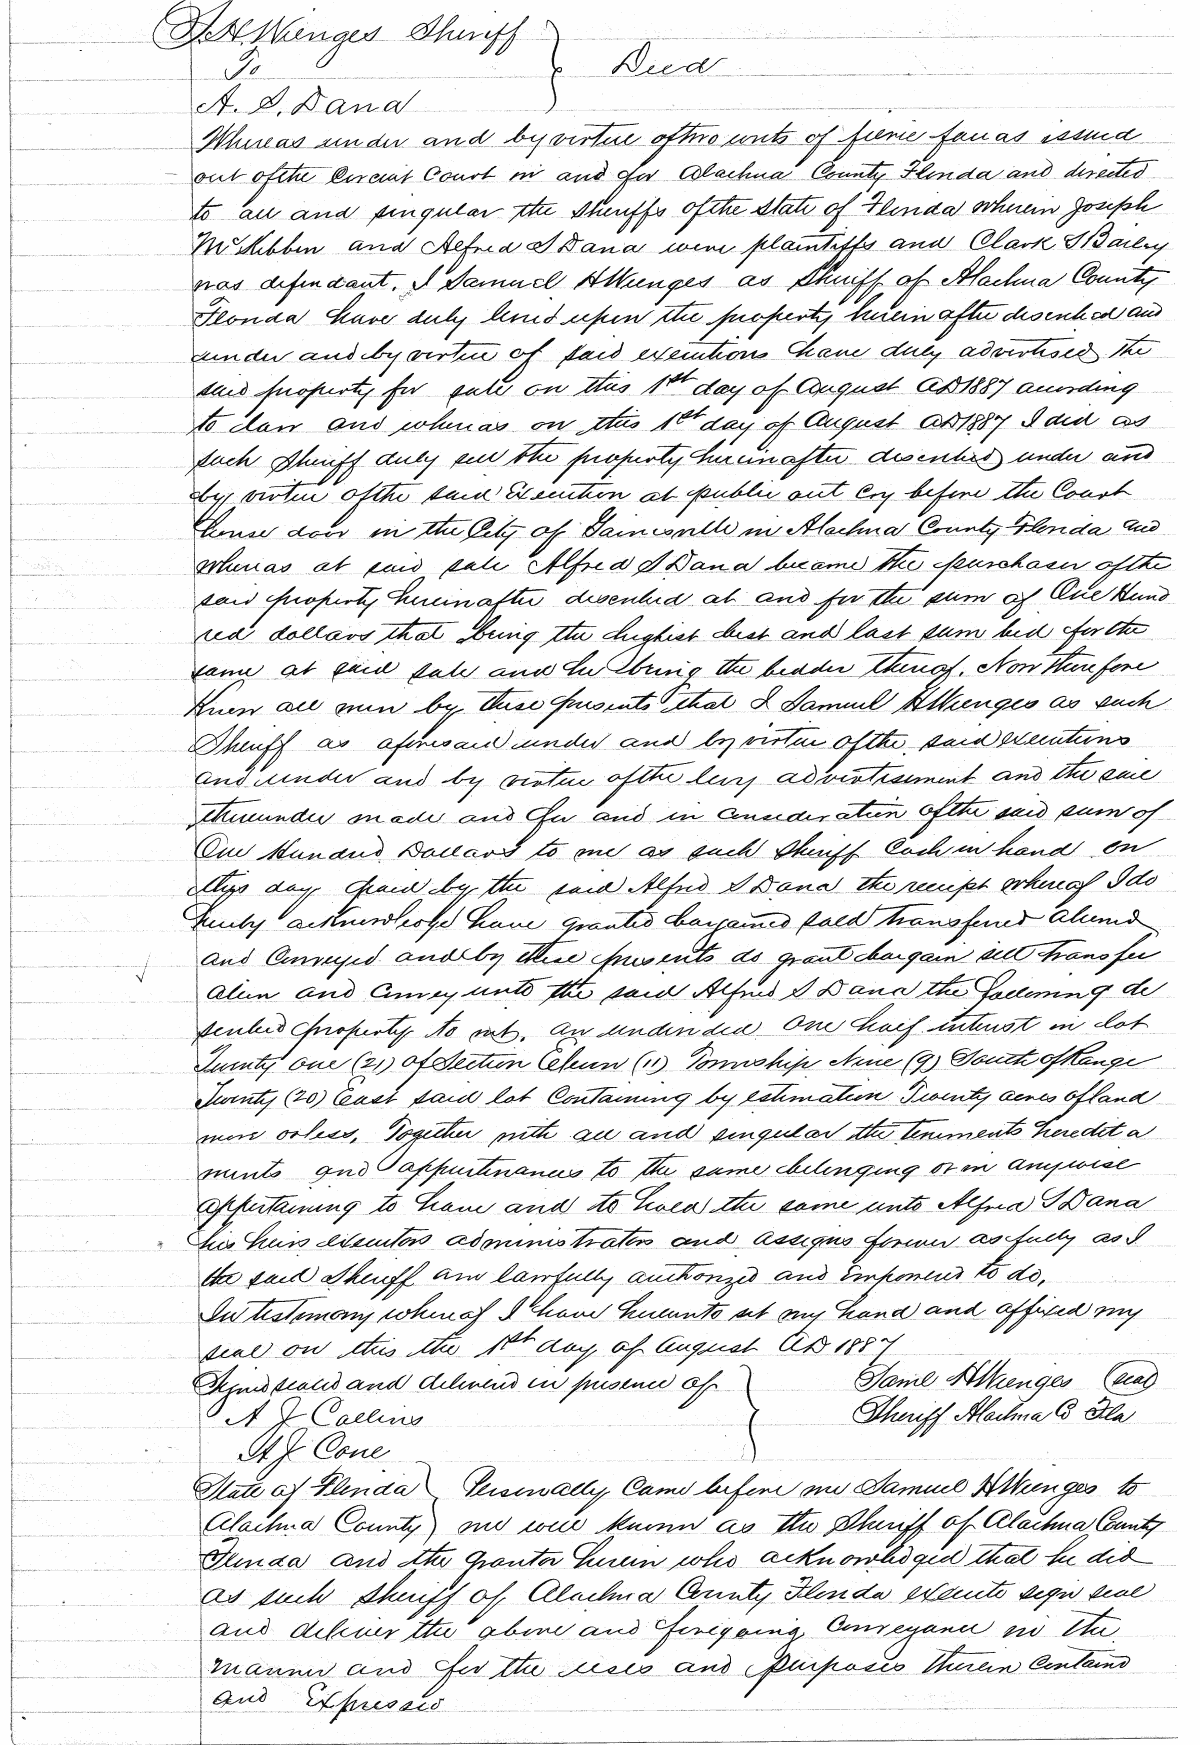 S. H. Wienges Sheriff
To } Deed
A. S. Dana
Whereas under and by virtue of two writs of fierie facias issued
out of the Circuit Court in and for Alachua County Florida and directed
to all and singular the Sheriffs of the State of Florida wherein Joseph
McKibbin and Alfred S Dana were plaintiffs and Clark S Bailey
was defendant. I Samuel H Wienges as Sheriff of Alachua County
Florida have duly levied upon the property herein after described and
under and by virtue of said executions have duly advertised the
said property for sale on this 1st day of August AD 1887 according
to law and whereas on this 1st day of August AD 1887 I did as
such Sheriff duly sell the property hereinafter described under and
by virtue of the said Execution at public out cry before the Court
house door in the City of Gainesville in Alachua County Florida and
whereas at said sale Alfred S Dana became the purchaser of the
said property hereinafter described at and for the sum of One Hund
red dollars that being the highest best and last sum bid for the
same at said sale and he being the bidder thereof. Now therefore
Know all men by these presents that I Samuel H Wienges as such
Sheriff as aforesaid under and by virtue of the said executions
and under and by virtue of the levy advertisement and the sale
thereunder made and for and in consideration of the said sum of
One Hundred Dollars to me as such Sheriff Cash in hand on
this day paid by the said Alfred S Dana the receipt whereof I do
hereby acknowledge have granted bargained sold transferred aliened
and Conveyed and by these presents do grant bargain sell transfer
alien and Convey unto the said Alfred S Dana the following de
scribed property to wit, an undivided One half interest in lot
Twenty one (21) of Section Eleven (11) Township Nine (9) South of Range
Twenty (20) East said lot Containing by estimation Twenty acres of land
more or less, Together with all and singular the tenements heredita
ments and appurtenances to the same belonging or in anywise
appertaining to have and to hold the same unto Alfred S Dana
his heirs executors administrators and assigns forever as fully as I
the said Sheriff am lawfully authorized and Empowered to do.
In testimony whereof I have hereunto set my hand and affixed my
seal on this the 1st day of August AD 1887
Signed sealed and delivered in presence of } Saml H Wienges (seal)
A J Collins Sheriff Alachua Co Fla
H J Cone
State of Florida ) Personally Came before me Samuel H Wienges to
Alachua County ) me well known as the Sheriff of Alachua County
Florida and the Grantor herein who acknowledged that he did
as such Sheriff of Alachua County Florida execute sign seal
and deliver the above and foregoing Conveyance in the
manner and for the uses and purposes therein Contained
and Expressed